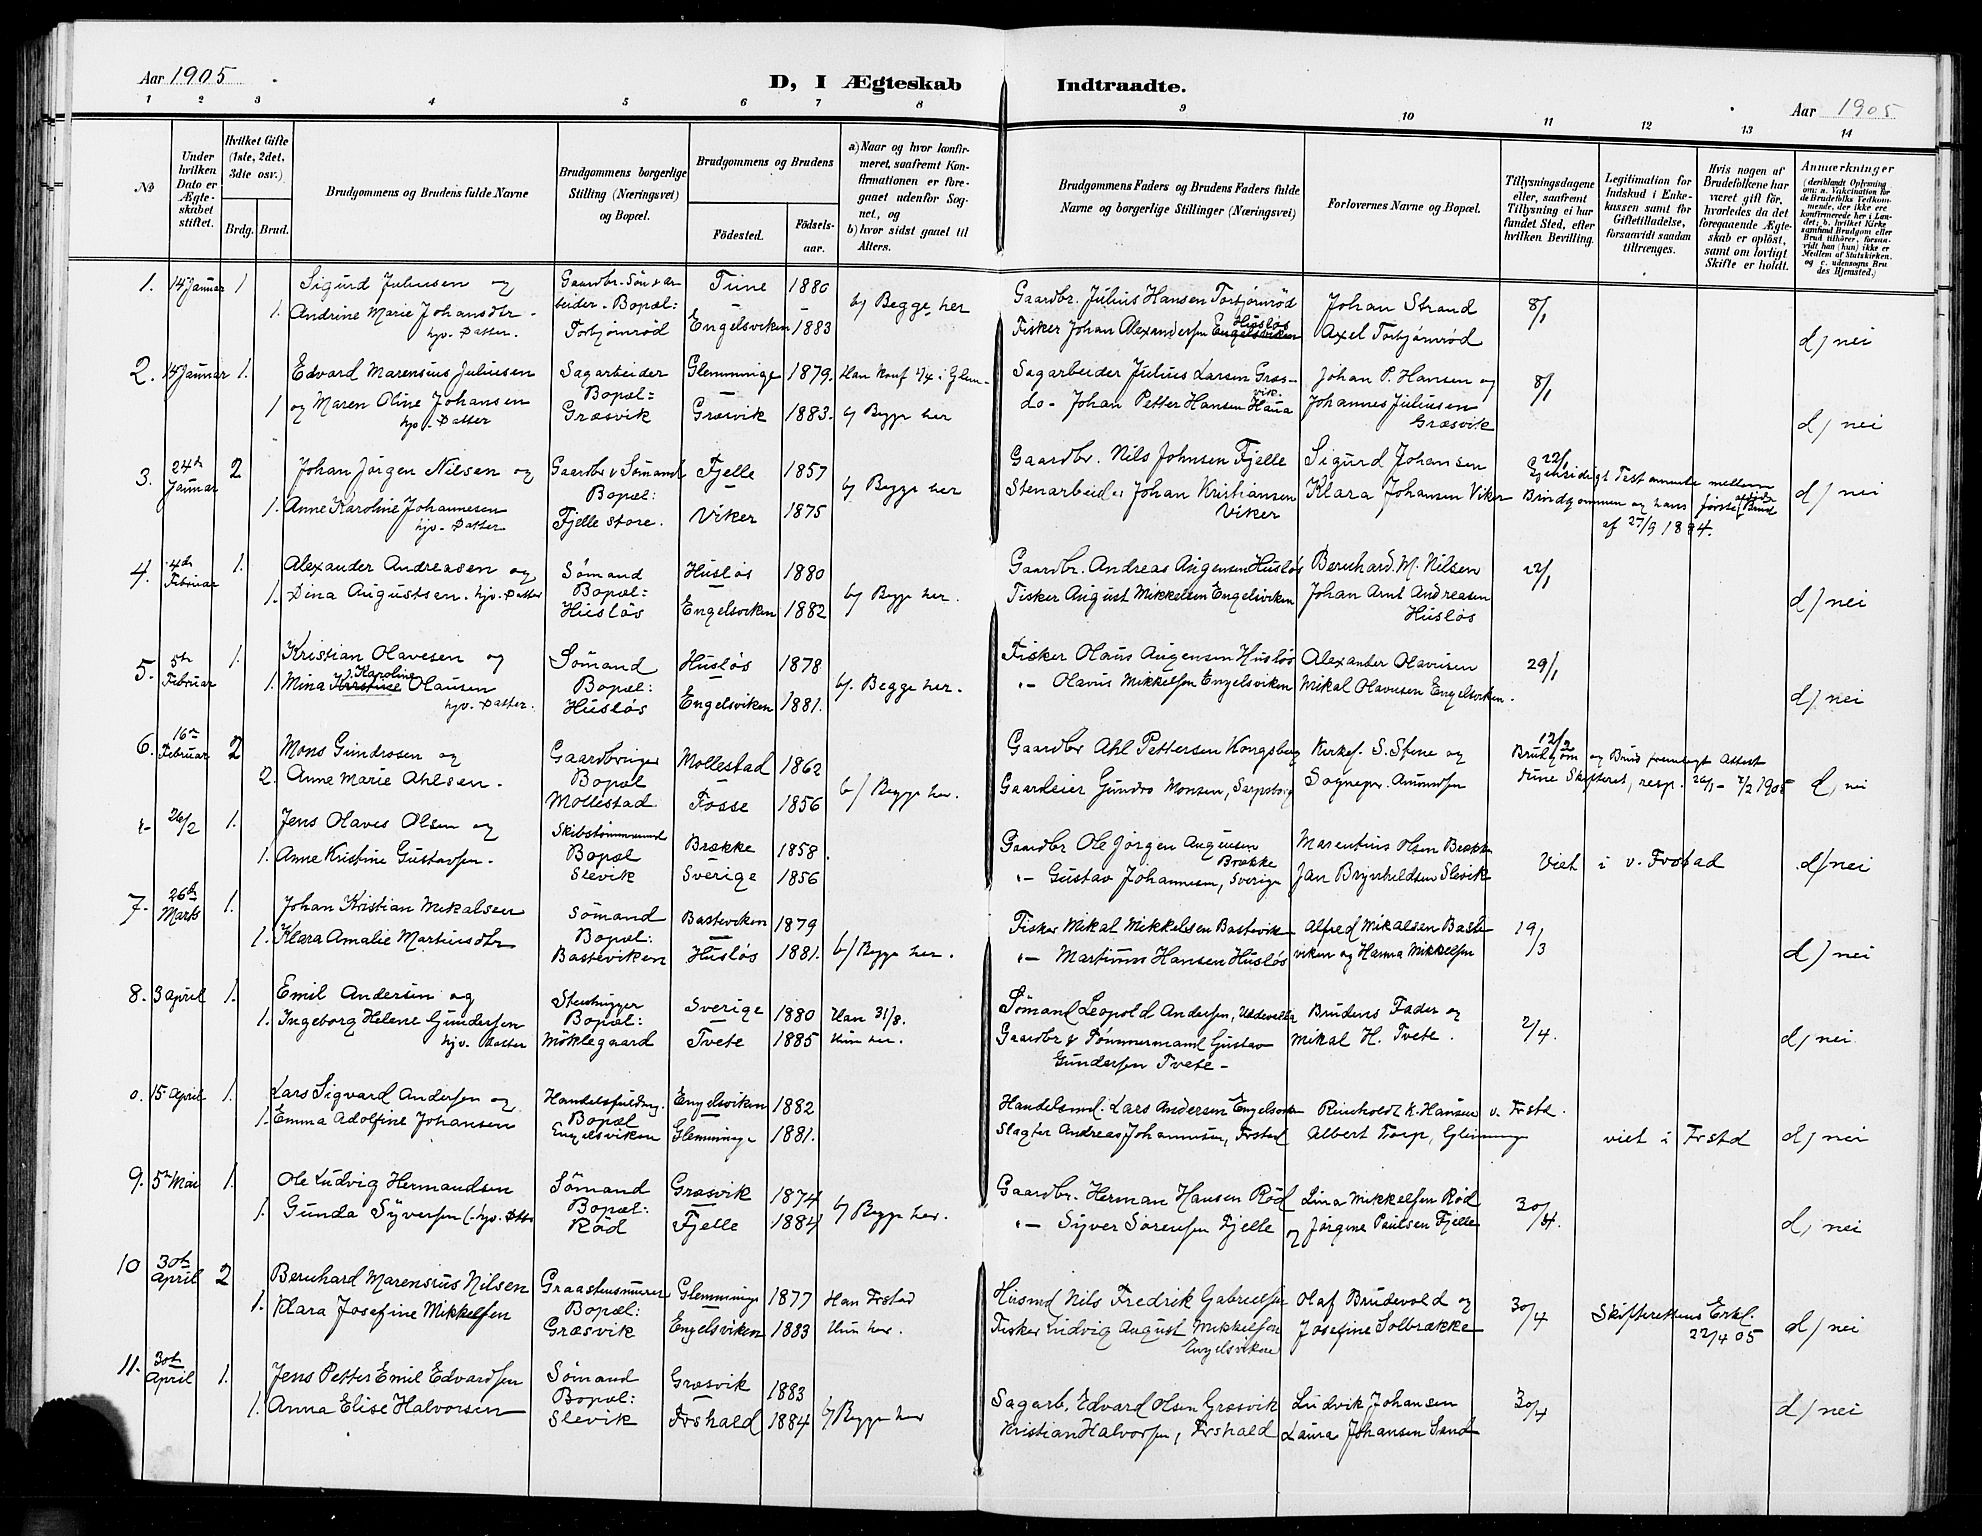 Aar 1905
D, I Ægteskab Indtraadte.
Aar 1905
1 2 3 4 5 6 7 8 9 10 11 12 13 14
No
Under hvilken Dato er Ægteskabet stiftet.
Hvilket Gifte (1ste, 2det, 3die osv.)
Brdg. Brud.
Brudgommens og Brudens fulde Navne
Brudgommens borgerlige Stilling (Næringsvei) og Bopæl.
Brudgommens og Brudens
Fødested. Fødselsaar.
a) Naar og hvor konfirmeret, saafremt Konfirmationen er foregaaet udenfor Sognet, og
b) hvor sidst gaaet til Alters.
Brudgommens Faders og Brudens Faders fulde Navne og borgerlige Stillinger (Næringsvei)
Forlovernes Navne og Bopæl.
Tillysningsdagene eller, saafremt Tillysning ei har fundet Sted, efter hvilken Bevilling.
Legitimation for Indskud i Enkekassen samt for Giftetilladelse, forsaavidt saadan tiltrænges.
Hvis nogen af Brudefolkene har været gift før, hvorledes da det foregaaende Ægteskab er opløst, samt om lovligt Skifte er holdt.
Anmærkninger (deriblandt Oplysning om: a. Vakcination for de Brudefolks Vedkommende, der ikke ere konfirmerede her i Landet; b. hvilket Kirkesamfund Brudgom eller Brud tilhører, forsaavidt han (hun) ikke er Medlem af Statskirken, og c. udensogns Brudes Hjemsted.)
1. 14 Januar 1 Sigurd Juliusen og Gaardbr. Søn & Ar- Tune 1880 b) Begge her Gaardbr. Julius Hansen Torbjørnrød Johan Strand 8/1
1. Andrine Marie Johansdtr beider. Bopæl: Engelsviken 1883 Fisker Johan Alexandersen Engelsviken Husløs Axel Torbjørnrød d) nei
hjv. Datter. Torbjørnrød
2. 14 Januar 1. Edvard Marensius Juliusen Sagarbeider Glemminge 1879. Han konf. i Glem- Sagarbeider Julius Larsen Græsvik. Johan P. Hansen og 8/1
1 og Maren Oline Johansen Bopæl: Græsvik 1883. b) Begge her do - Johan Petter Hansen Haua Johannes Juliusen d) nei
hjv. Datter Græsvik Græsvik
3. 24de Januar 2 Johan Jørgen Nilsen og Gaardbr & Sømand Fjelle 1857 b) Begge her Gaardbr. Nils Johnsen Fjelle Sigurd Johansen 22/1 Gjensidigt Testamente mellem
1. Anne Karoline Johannesen Bopæl: Viker 1875 Stenarbeider Johan Kristiansen Klara Johansen Viker Brudgommen og hans første Brud d) nei
hjv. Datter Fjelle store. Viker af 27/9 1884.
4. 4de Februar 1. Alexander Andreasen og Sømand Husløs 1880 b) Begge her. Gaardbr. Andreas Augensen Husløs Bernhard M. Nilsen 22/1
1. Dina Augustsen. hjv. Datter Bopæl: Engelsviken 1882 Fisker August Mikkelsen Engelsviken Johan Arnt Andreasen d) nei
Husløs Husløs
5. 5te Februar 1. Kristian Olavesen og Sømand Husløs 1878 b). Begge her. Fisker Olaus Augensen Husløs Alexander Olavesen 29/1
1. Mina Karoline Olausen Bopæl: Engelsviken 1881. "- Olavus Mikkelsen Engelsviken Mikal Olavesen Engelsviken. d) nei
hjv. Datter. Husløs
6. 16de Februar 2 Mons Gundrosen og Gaardbruger Mollestad 1862 b) Begge her. Gaardbr Ahl Pettersen Kongsberg Kirkes. S. Stene og 12/2 Brudgom og Brud fremlagt Attest
2. Anne Marie Ahlsen. Bopæl Fosse 1856 Gaardeier Gundro Monsen, Sarpsborg Sognepr. Amundsen Tune Skifteret, resp. 26/1 - 7/2 1905 d, nei
Mollestad
26/2 1. Jens Olaves Olsen og Skibstømmermand Brække 1858. Gaardbr Ole Jørgen Augensen Brække Marentius Olsen Brække
1. Anne Kristine Gustavsen. Bopæl Sverige 1856 "- Gustav Johannesen, Sverige Jan Brynhildsen Slevik Viet i v. Frstad d) nei
Slevik
7. 26de Marts 1. Johan Kristian Mikalsen Sømand Basteviken 1879 Fisker Mikal Mikkelsen Bastevik Alfred Mikalsen Baste- 19/3
1. Klara Amalie Martinsdtr Bopæl: Husløs 1881. b) Begge her. "- Martinus Hansen Husløs viken og Hanna Mikkelsen d) nei
Basteviken
8. 3 April 1. Emil Andersen og Stenhugger Sverige 1880 Han 31/8. Sømand Leopold Andersen, Uddevalla Brudens Fader og 2/4.
1. Ingeborg Helene Gundersen Bopæl: Tvete 1885 Hun her. Gaardbr & Tømmermand Gustav Mikal H. Tvete. d) nei
hjv. Datter Møklegaard Gundersen Tvete -
0. 15 April 1. Lars Sigvard Andersen og Handelsfuldm. Engelsviken 1882 Handelsmd. Lars Andersen Engelsvken Reinholdt K. Hansen v. Frstd.
1. Emma Adolfine Johansen Bopæl Glemminge 1881. Slagter Andreas Johannesen, Frstad Albert Torp, Glemminge viet i Frstd d) nei
Engelsviken
9. 5te Mai 1. Ole Ludvig Hermandsen Sømand Græsvik 1874 b) Begge her. Gaardbr. Herman Hansen Rød Lina Mikkelsen Rød 30/4
1. Gunda Syversen (hjv. Dtter Bopæl: Fjelle 1884 "- Syver Sørensen Fjelle og Jørgine Paulsen Fjelle d, nei
Rød
10 30te April 2 Bernhard Marensius Nilsen Graastensmurer Glemminge 1877 Han Frstad Husmd Nils Fredrik Gabrielsen Olaf Brudevold og 30/4 Skifterettens Erkl.
1. Klara Josefine Mikkelsen Bopæl: Engelsviken 1883 Hun her. Fisker Ludvig August Mikkelsen Josefine Solbrække 22/4 05 d) nei
Græsvik Engelsviken
11. 30te April 1. Jens Petter Emil Edvardsen Sømand Græsvik 1883 b) Begge her Sagarb. Edvard Olsen Græsvik Ludvik Johansen 30/4
1. Anna Elise Halvorsen Bopæl: Frshald 1884 Kristian Halvorsen, Frshald Laura Johansen Sand d) nei
Slevik